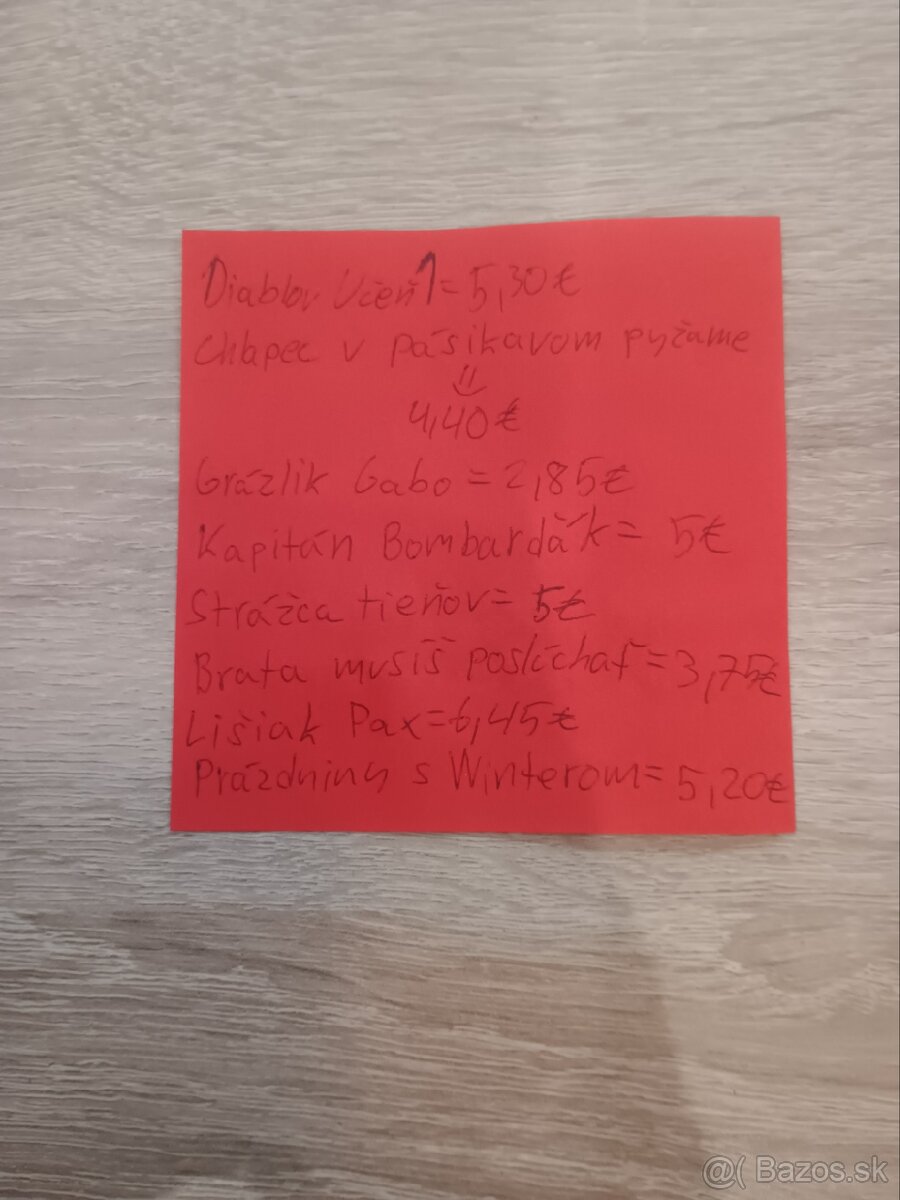 Diablov Učeň 1 = 5,30€
Chlapec v pásikavom pyžame
=
4,40€
Grázlik Gabo = 2,85€
Kapitán Bombarďák = 5€
Strážca tieňov = 5€
Brata musíš poslúchať = 3,75€
Lišiak Pax = 6,45€
Prázdniny s Winterom = 5,20€
@( Bazos.sk